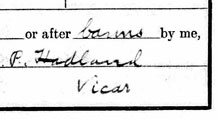 or after banns by me,
. P. Hadland
Vicar